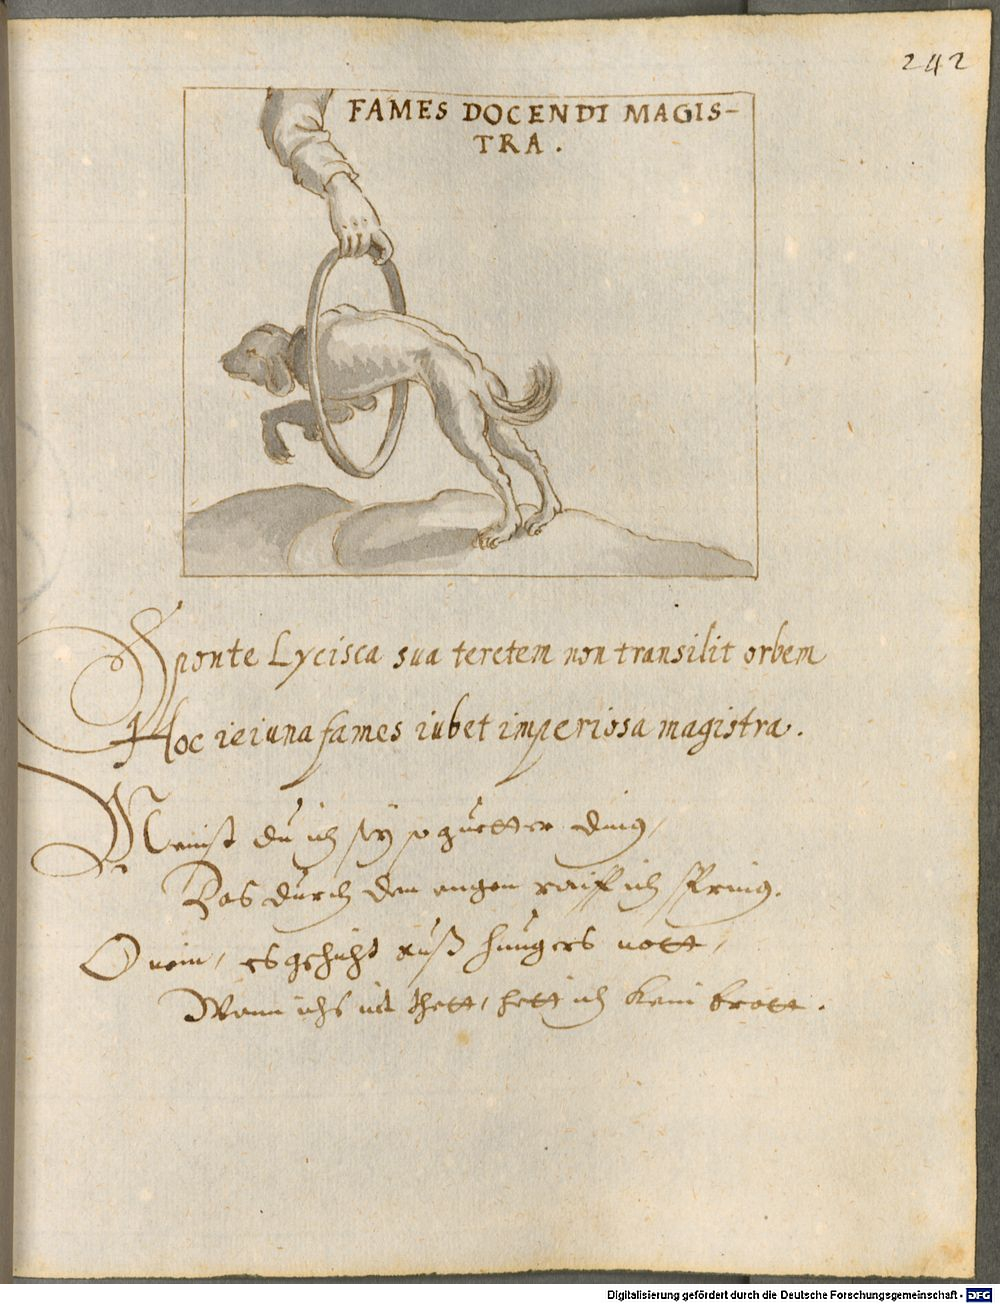 242
FAMES DOCENDI MAGIS-
TRA.
Sponte Lycisca sua teretem non transilit orbem
Hoc ieiuna fames iubet imperiosa magistra.
Meinst du ich sÿ so guetter ding,
Das durch den engen raiff ich spring.
O nein, es gschicht auß hungers nott,
Wann ichs nit thett, hett ich kein brott.
Digitalisierung gefördert durch die Deutsche Forschungsgemeinschaft - DFG